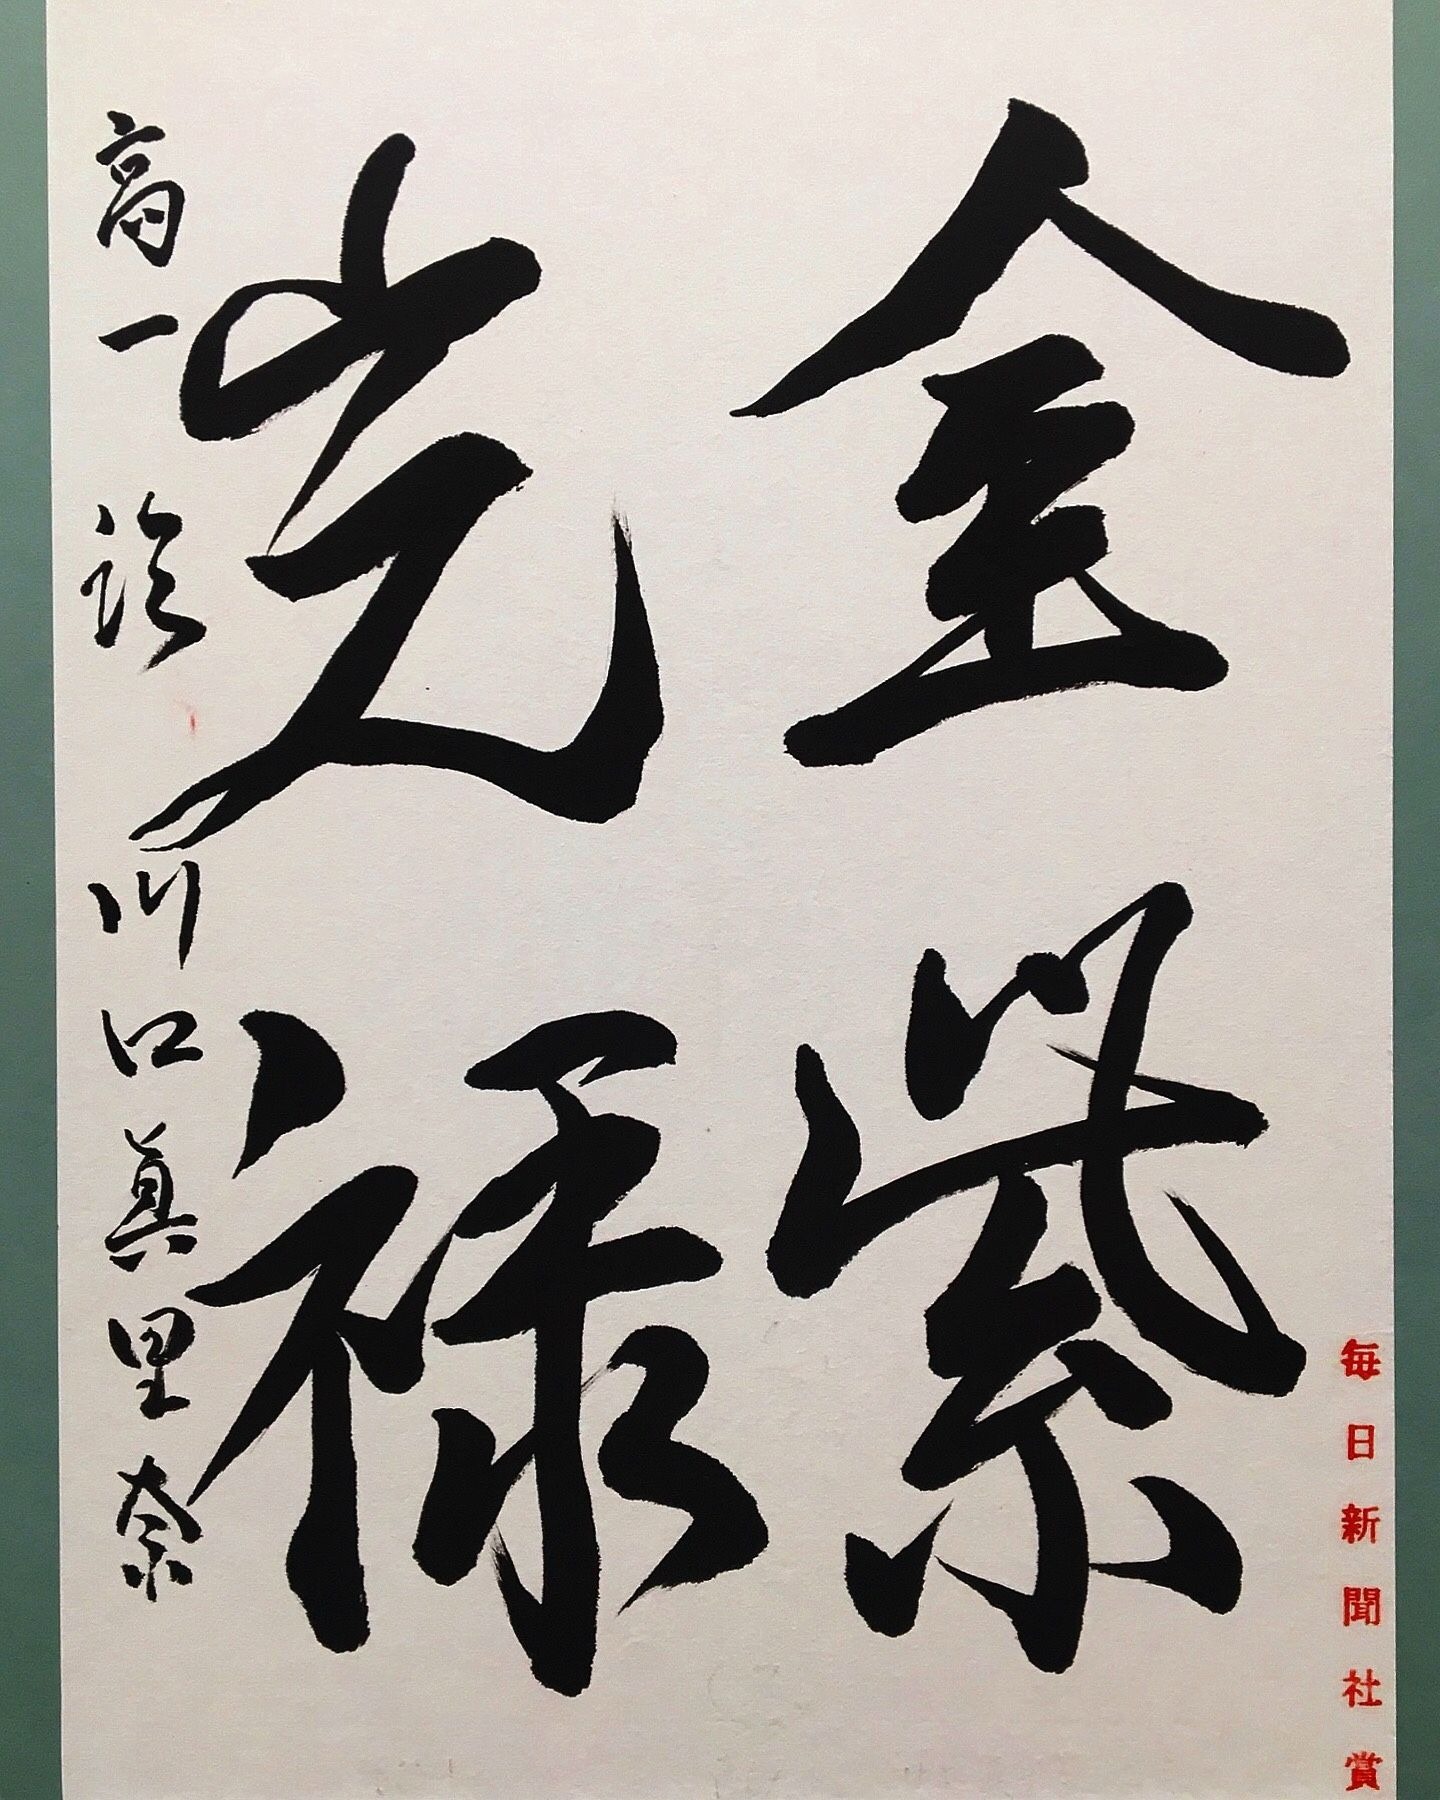 金紫
光禄
高一 川口真里奈
毎日新聞社賞